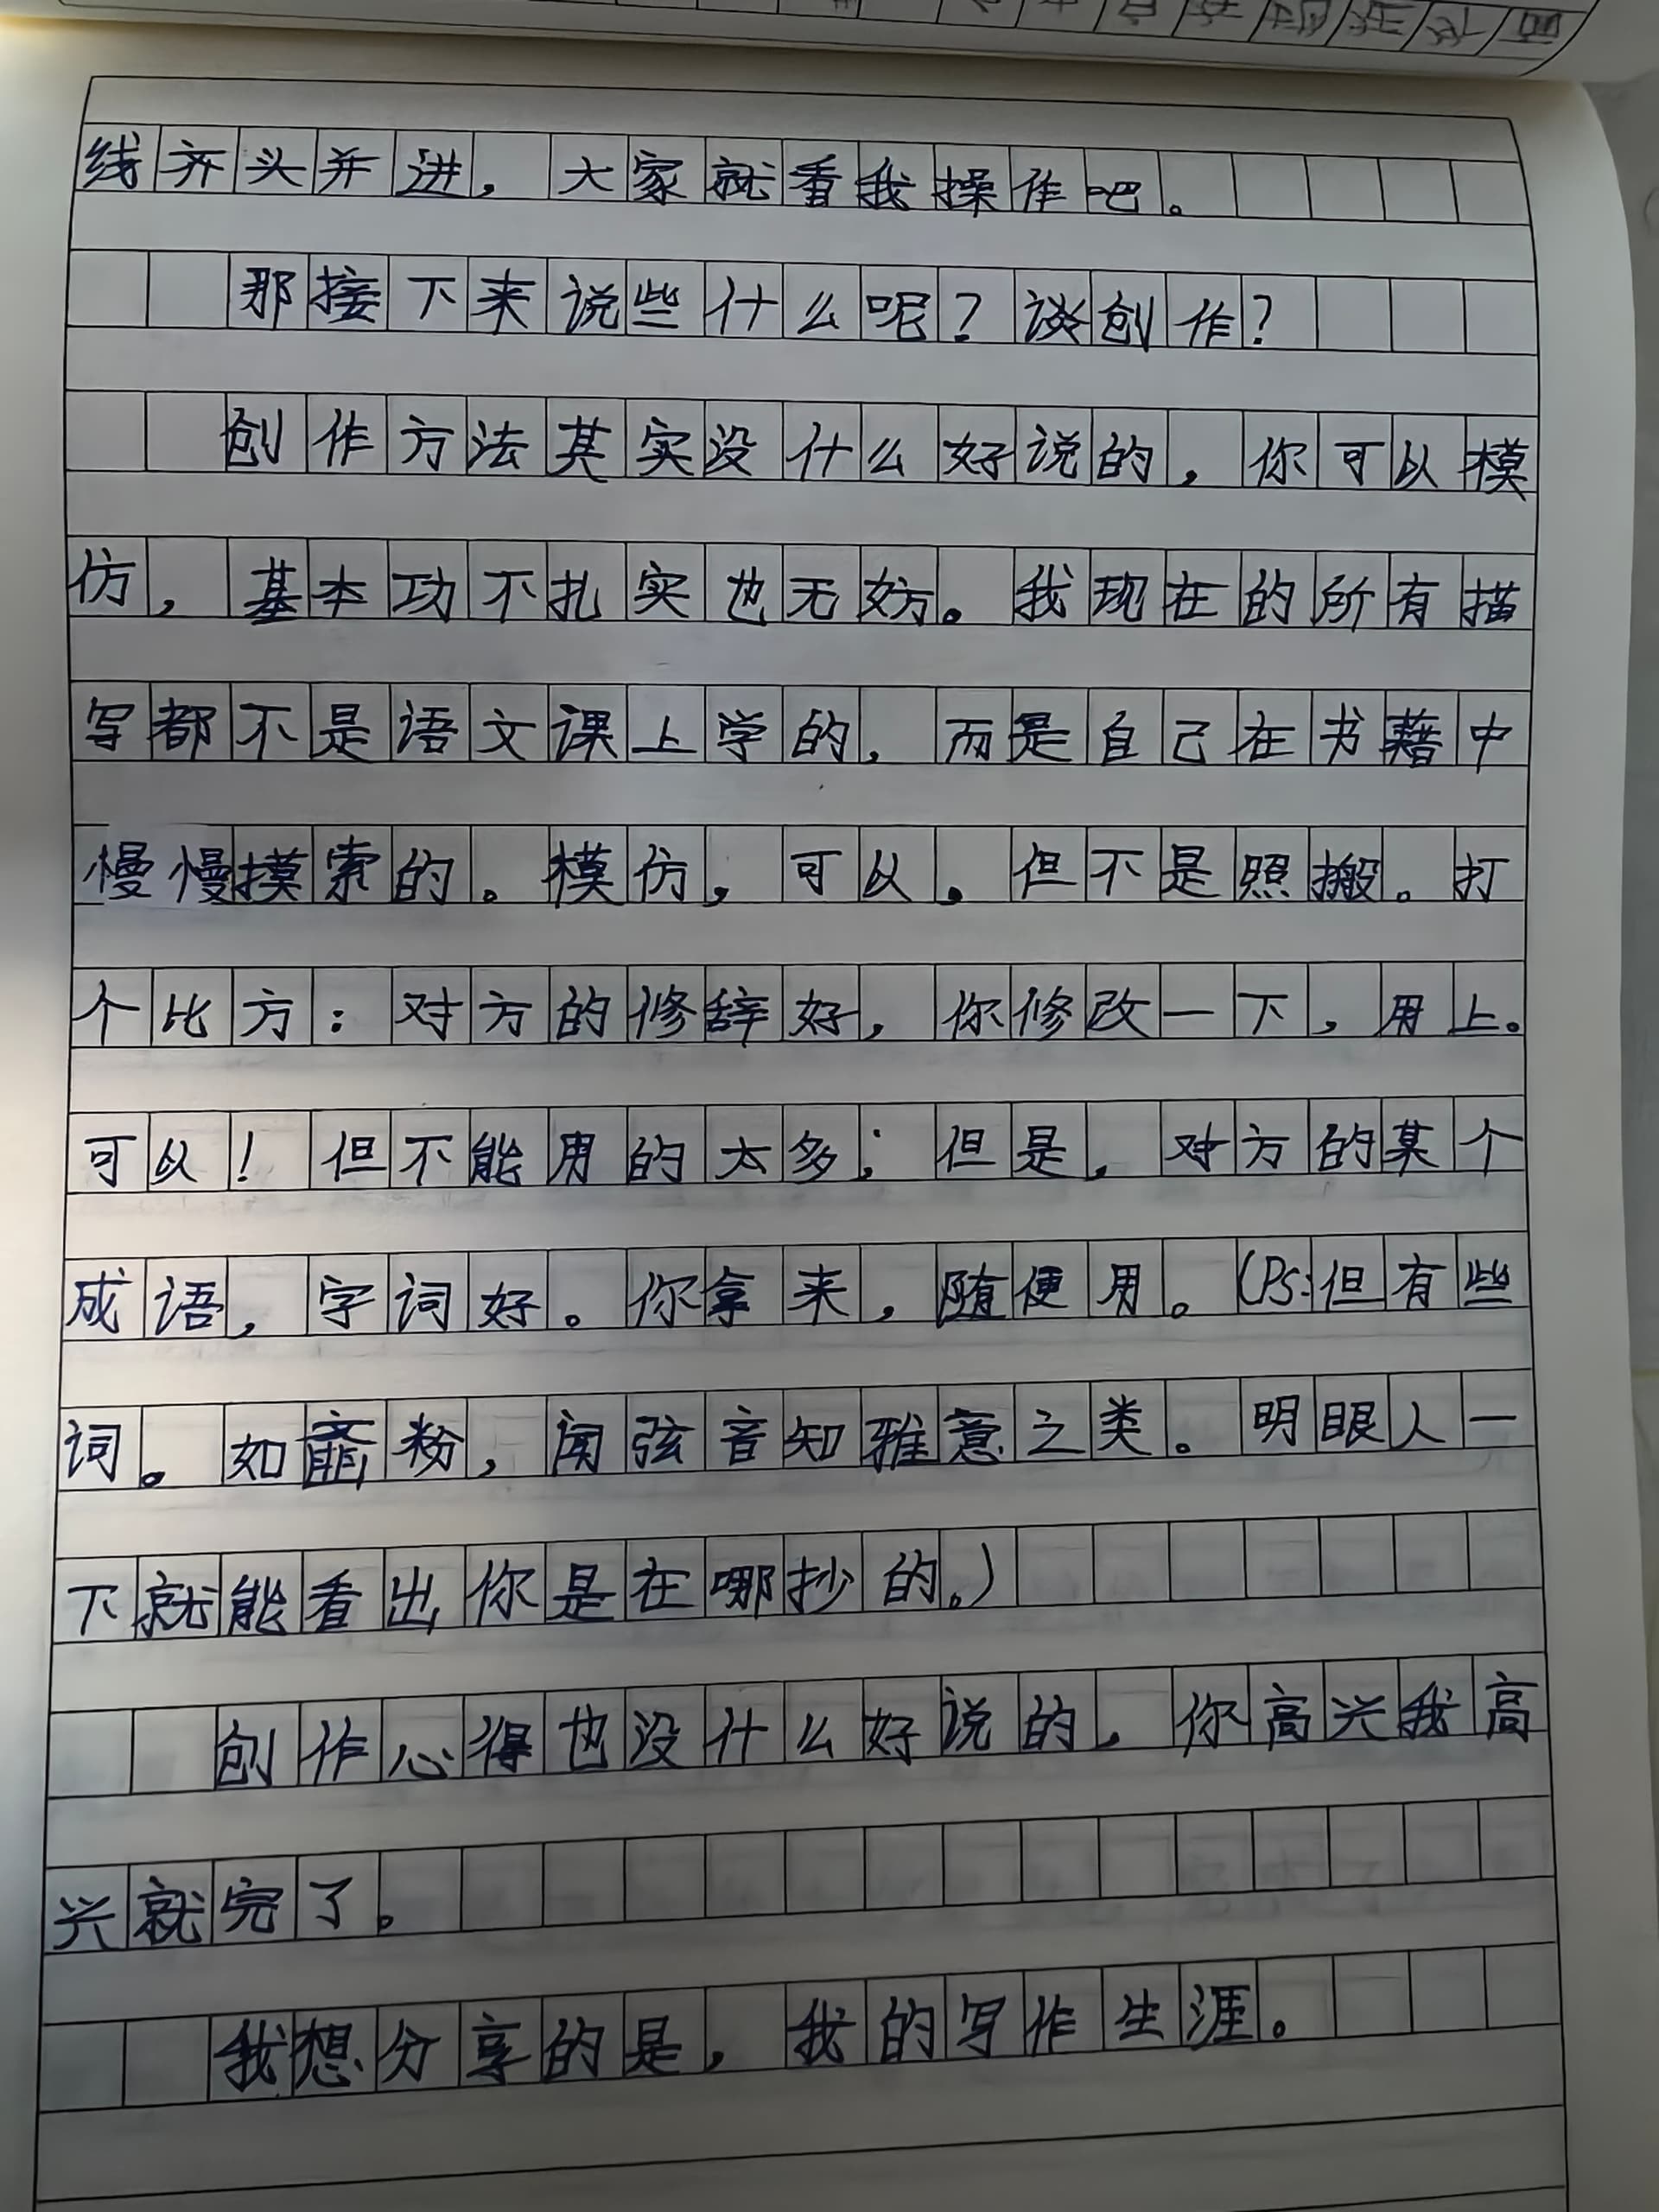 线齐头并进，大家就看我操作吧。
那接下来说些什么呢？谈创作？
创作方法其实没什么好说的，你可以模
仿，基本功不扎实也无妨。我现在的所有描
写都不是语文课上学的，而是自己在书藉中
慢慢摸索的。模仿，可以。但不是照搬。打
个比方：对方的修辞好，你修改一下，用上。
可以！但不能用的太多；但是，对方的某个
成语，字词好。你拿来，随便用。（Ps：但有些
词。如齑粉，闻弦音知雅意之类。明眼人一
下就能看出你是在哪抄的。）
创作心得也没什么好说的，你高兴我高
兴就完了。
我想分享的是，我的写作生涯。